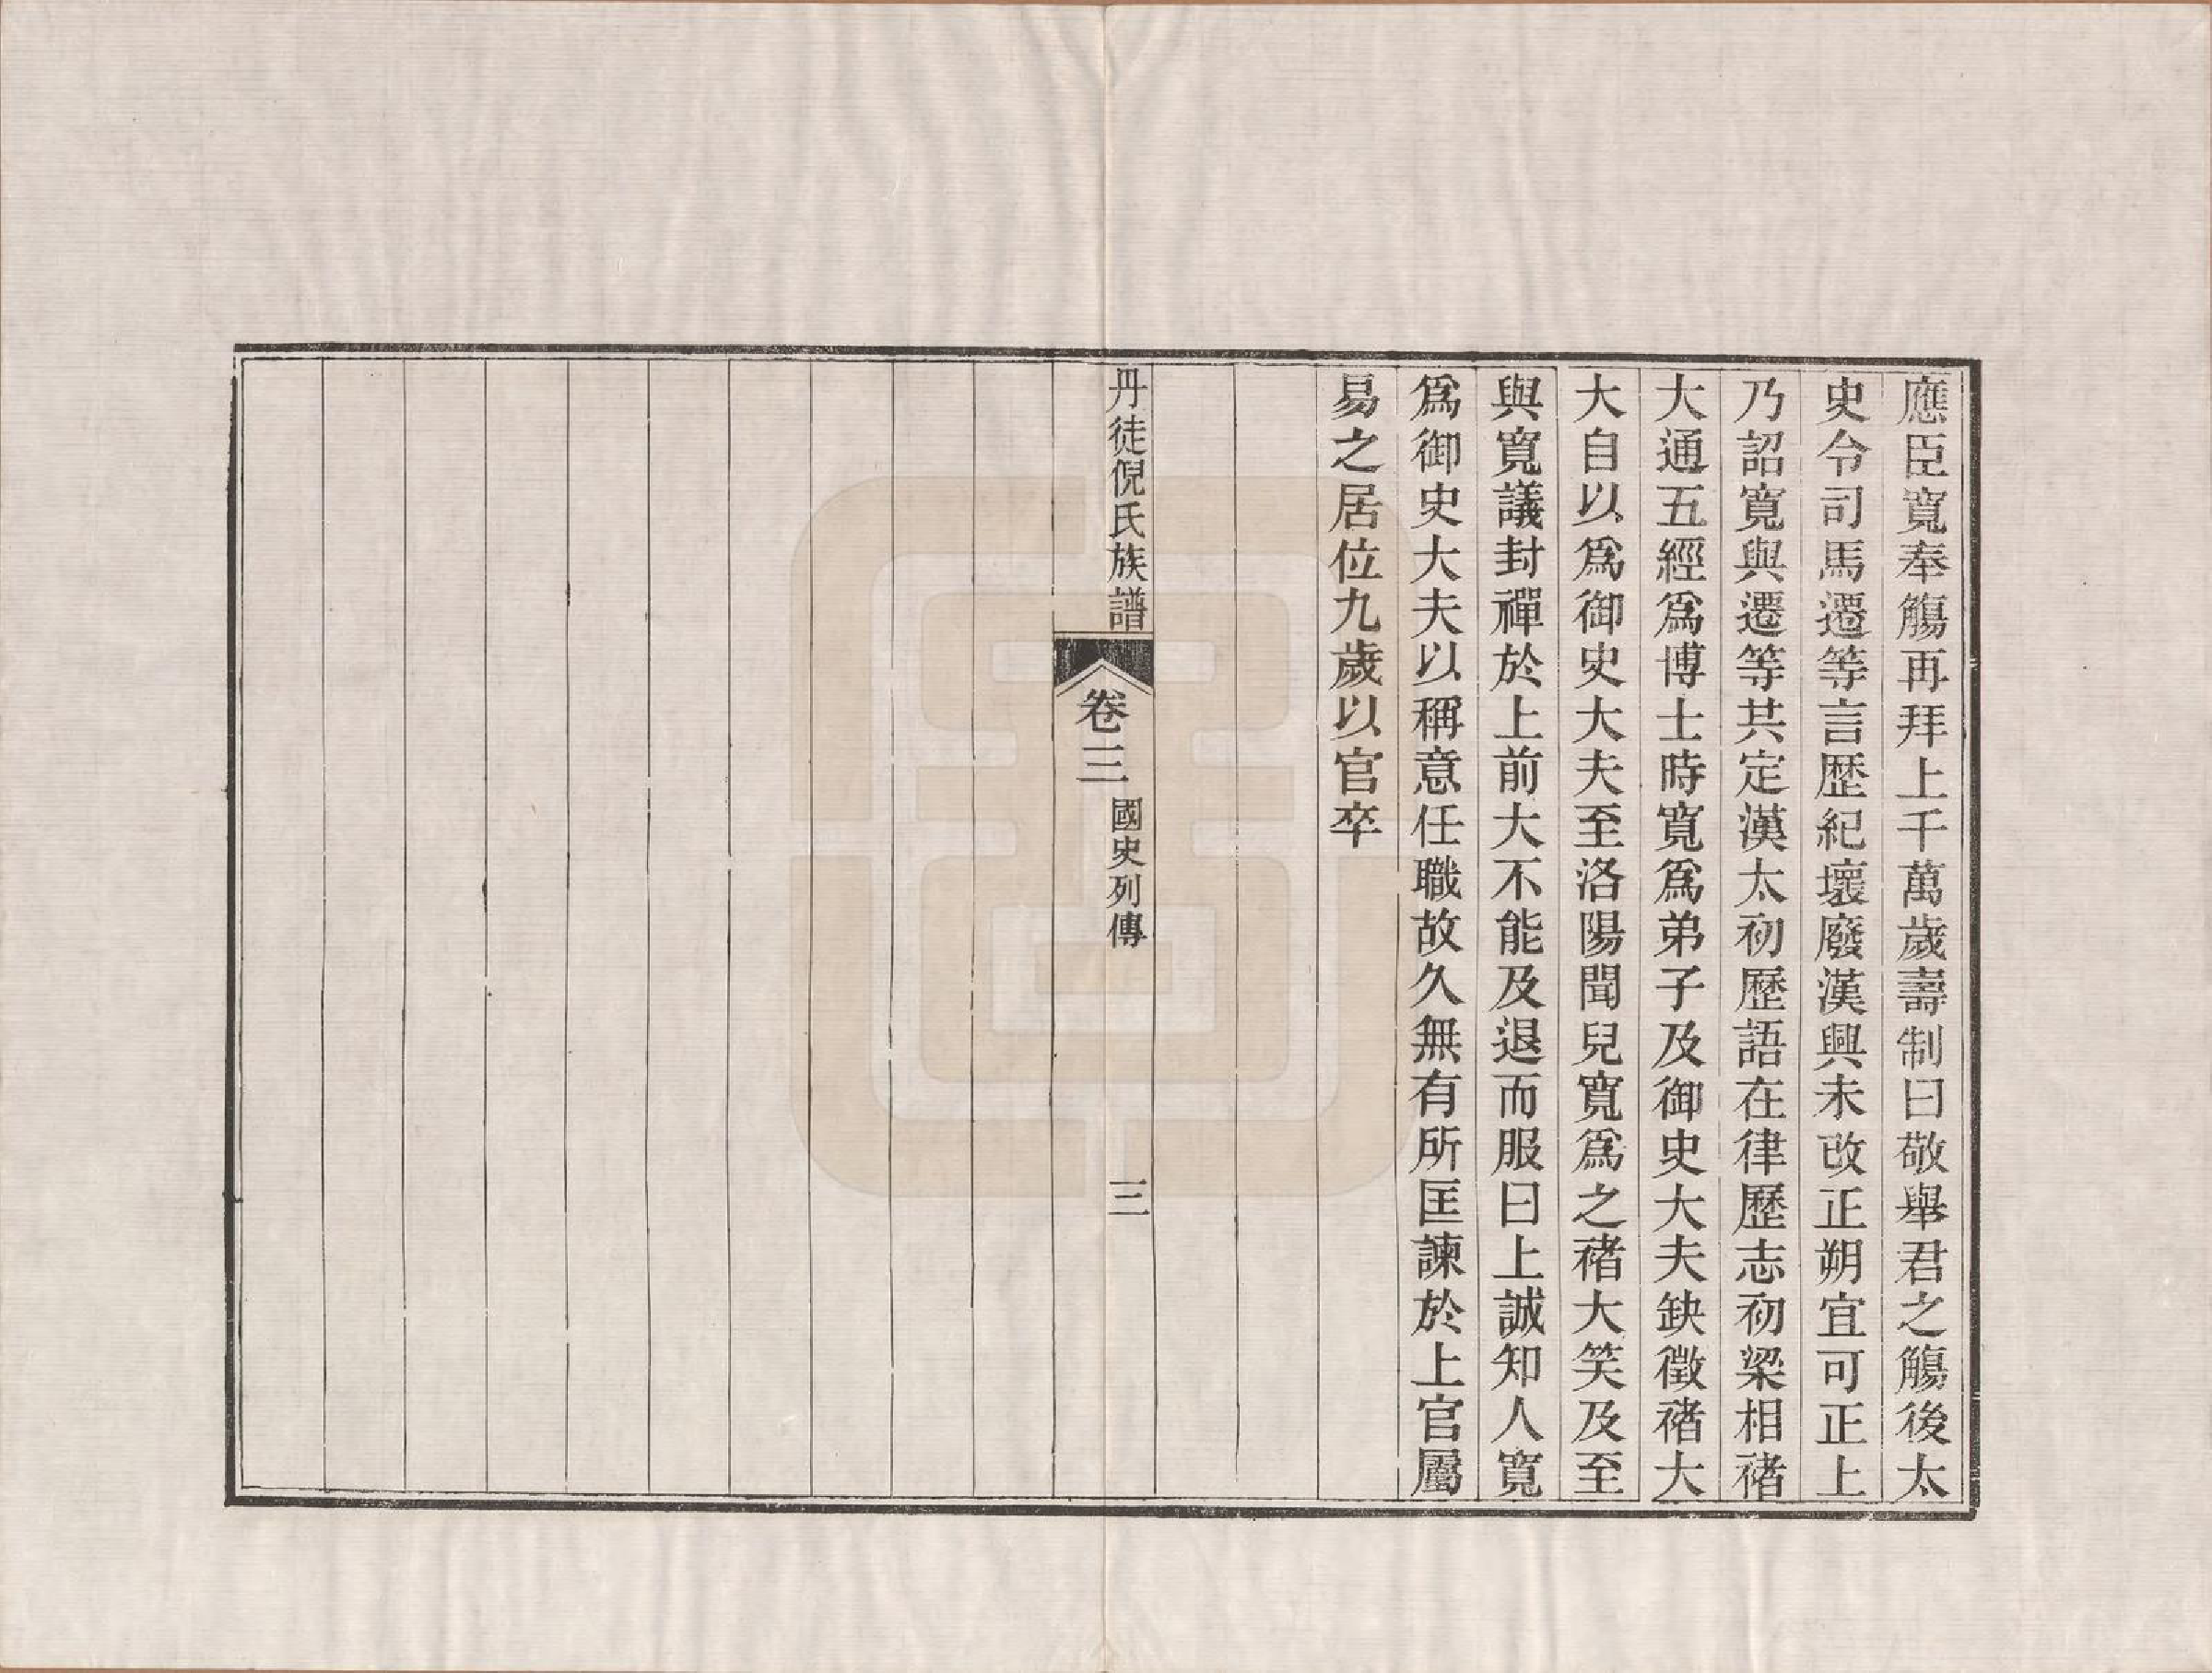 應臣寬奉觴再拜上千萬歲壽制曰敬舉君之觴後太
史令司馬遷等言歴紀壞廢漢興未改正朔宜可正上
乃詔寬與遷等共定漢太初歷語在律歷志初梁相褚
大通五經爲博士時寬爲弟子及御史大夫缺徵褚大
大自以爲御史大夫至洛陽聞兒寬爲之褚大笑及至
與寬議封禪於上前大不能及退而服曰上誠知人寬
爲御史大夫以稱意任職故久無有所匡諫於上官屬
易之居位九歲以官卒
丹徒倪氏族譜
卷三
國史列傳
三